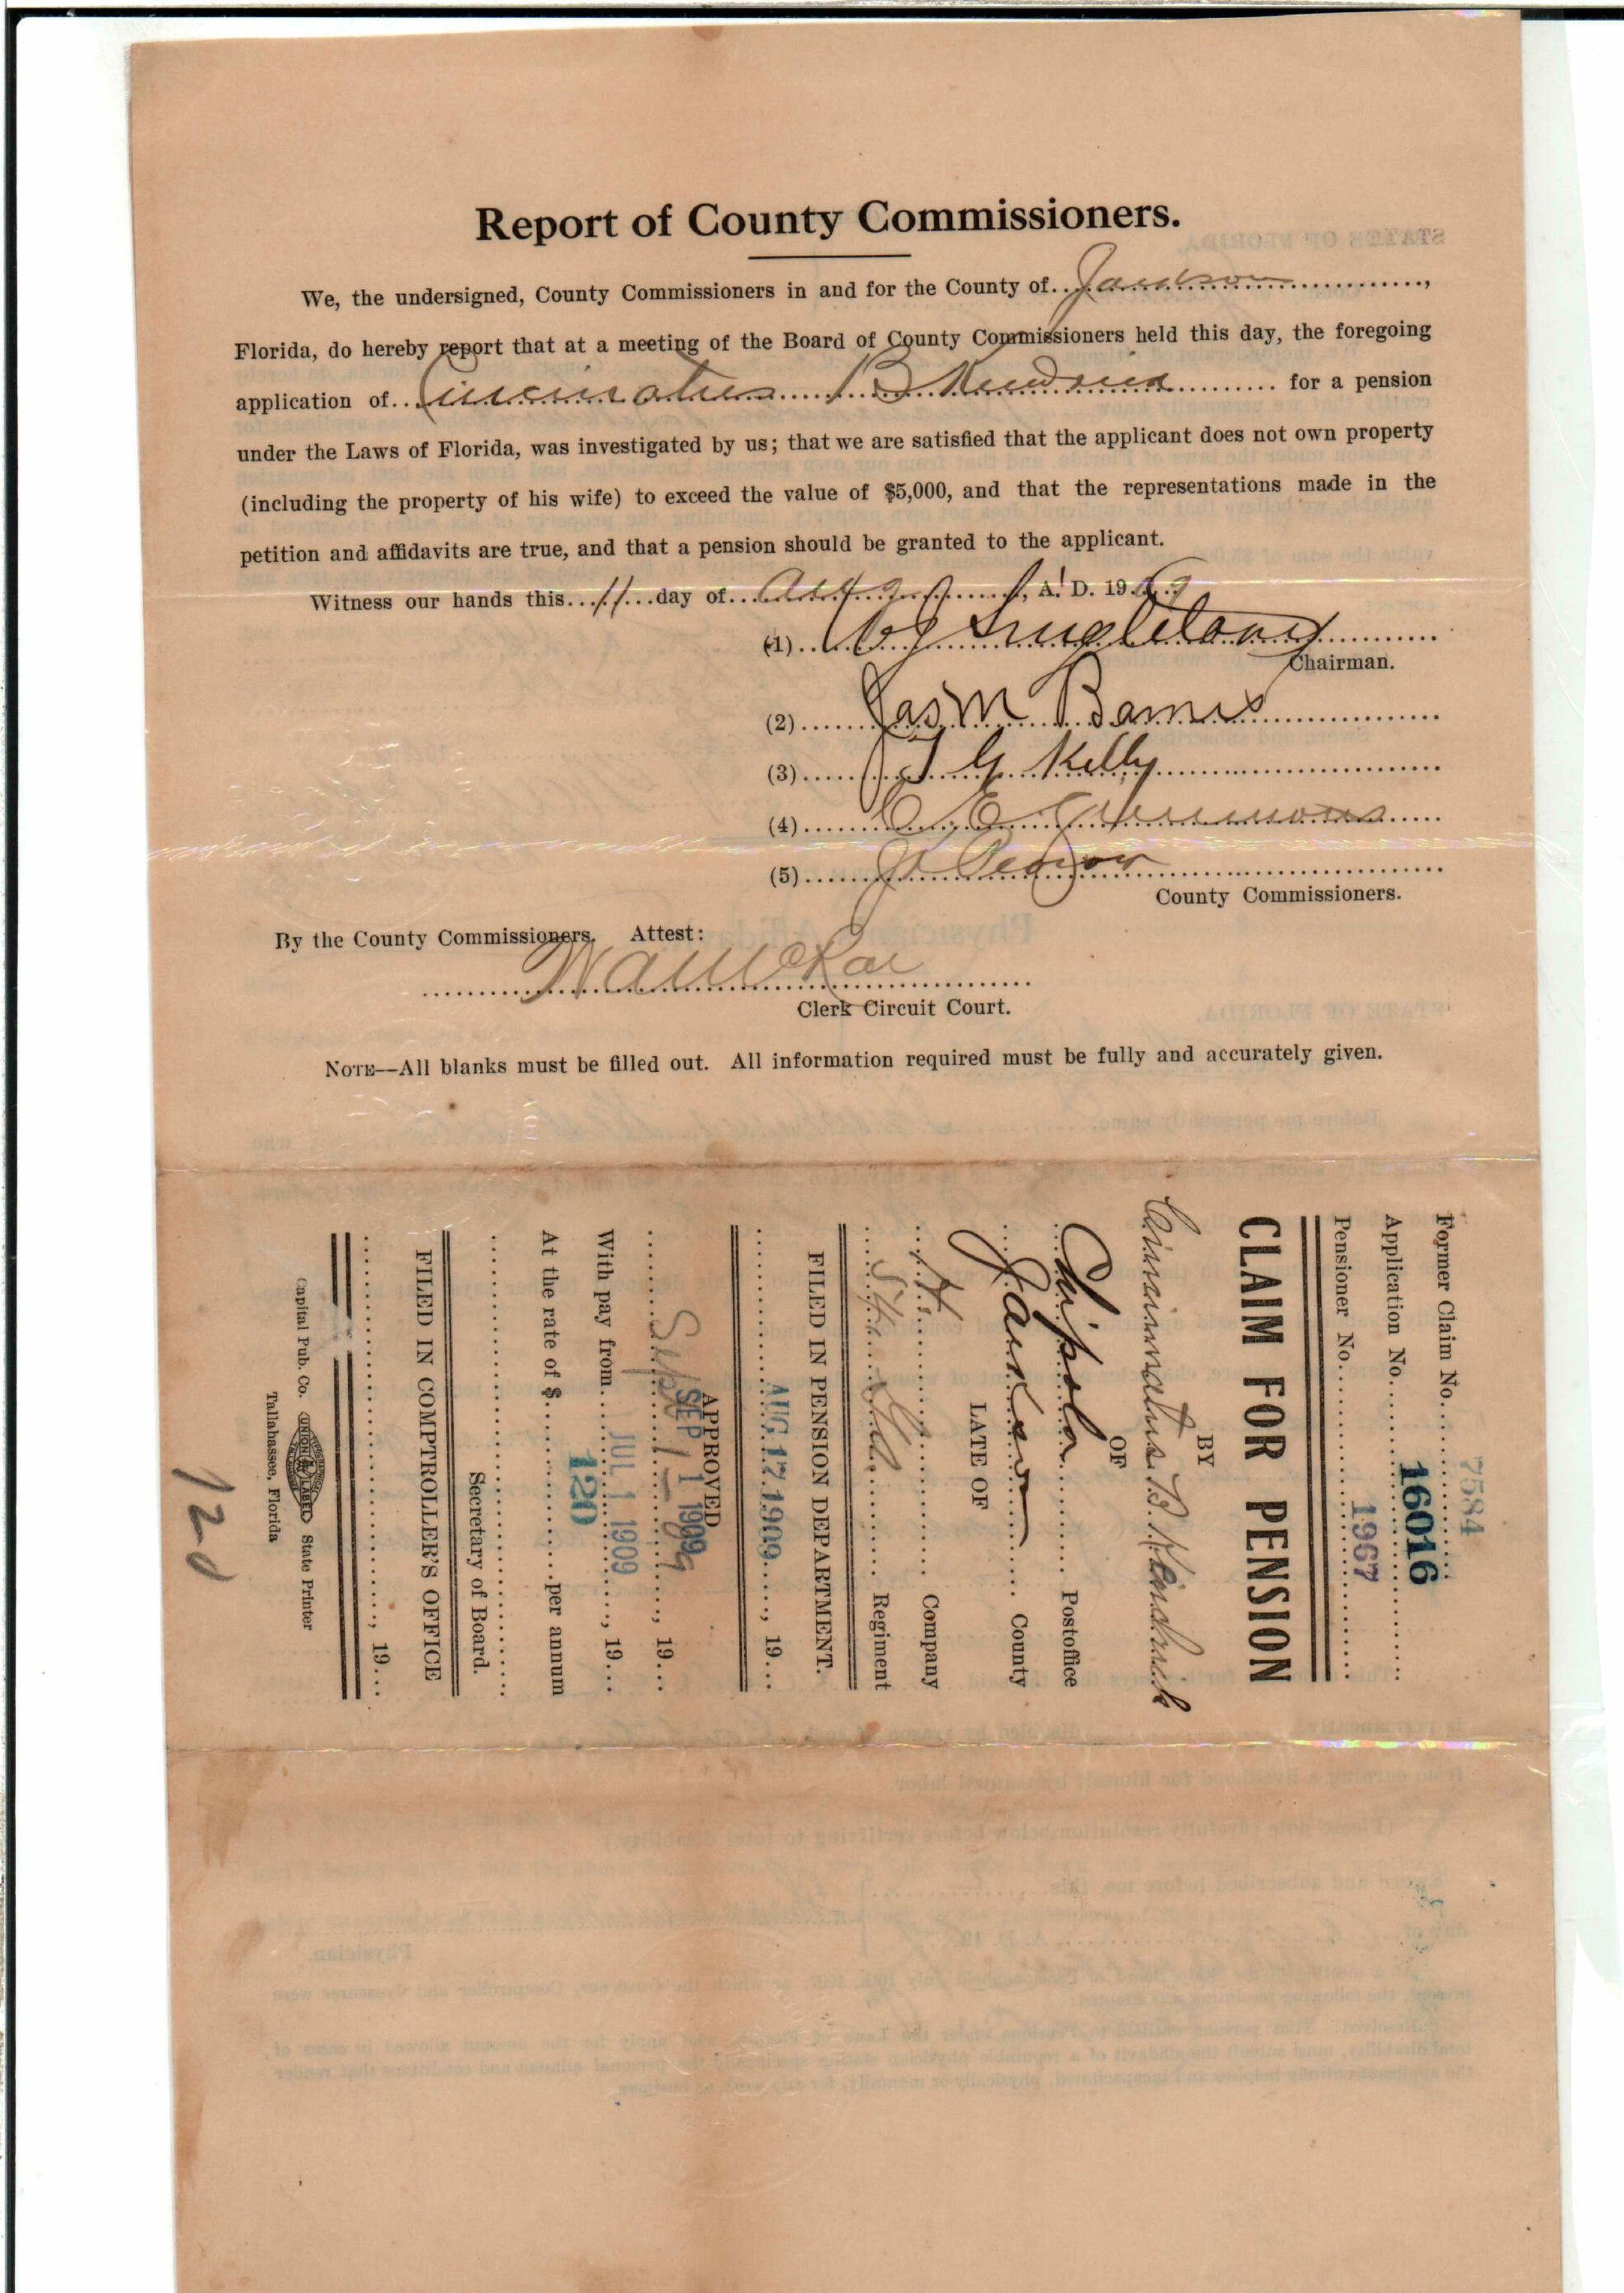 Report of County Commissioners.
We, the undersigned, County Commissioners in and for the County of Jackson,
Florida, do hereby report that at a meeting of the Board of County Commissioners held this day, the foregoing
application of Cincinatus B Kendrick for a pension
under the Laws of Florida, was investigated by us; that we are satisfied that the applicant does not own property
(including the property of his wife) to exceed the value of $5,000, and that the representations made in the
petition and affidavits are true, and that a pension should be granted to the applicant.
Witness our hands this 11 day of August, A. D. 1909
(1) Singletary
Chairman.
(2) Jas M Barnes
(3) J G Kelly
(4) C E
(5)
County Commissioners.
By the County Commissioners. Attest:
W A McRae
Clerk Circuit Court.
NOTE—All blanks must be filled out. All information required must be fully and accurately given.
Former Claim No. 7584
Application No. 16016
Pensioner No. 1967
CLAIM FOR PENSION
BY
Cincinnatus B. Kendrick
OF
Chipola Postoffice
Jackson County
LATE OF
A Company
5th Regiment
FILED IN PENSION DEPARTMENT.
AUG 17 1909, 19
APPROVED
SEP 1 1909
Sept 1 - 09, 19
With pay from JUL 1 1909, 19
120
At the rate of $ per annum
Secretary of Board.
FILED IN COMPTROLLER'S OFFICE
, 19
Capital Pub. Co. UNION LABEL State Printer
Tallahassee, Florida
120